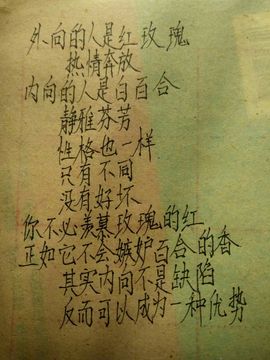 外向的人是红玫瑰
热情奔放
内向的人是白百合
静雅芬芳
性格也一样
只有不同
没有好坏
你不必羡慕玫瑰的红
正如它不会嫉妒百合的香
其实内向不是缺陷
反而可以成为一种优势